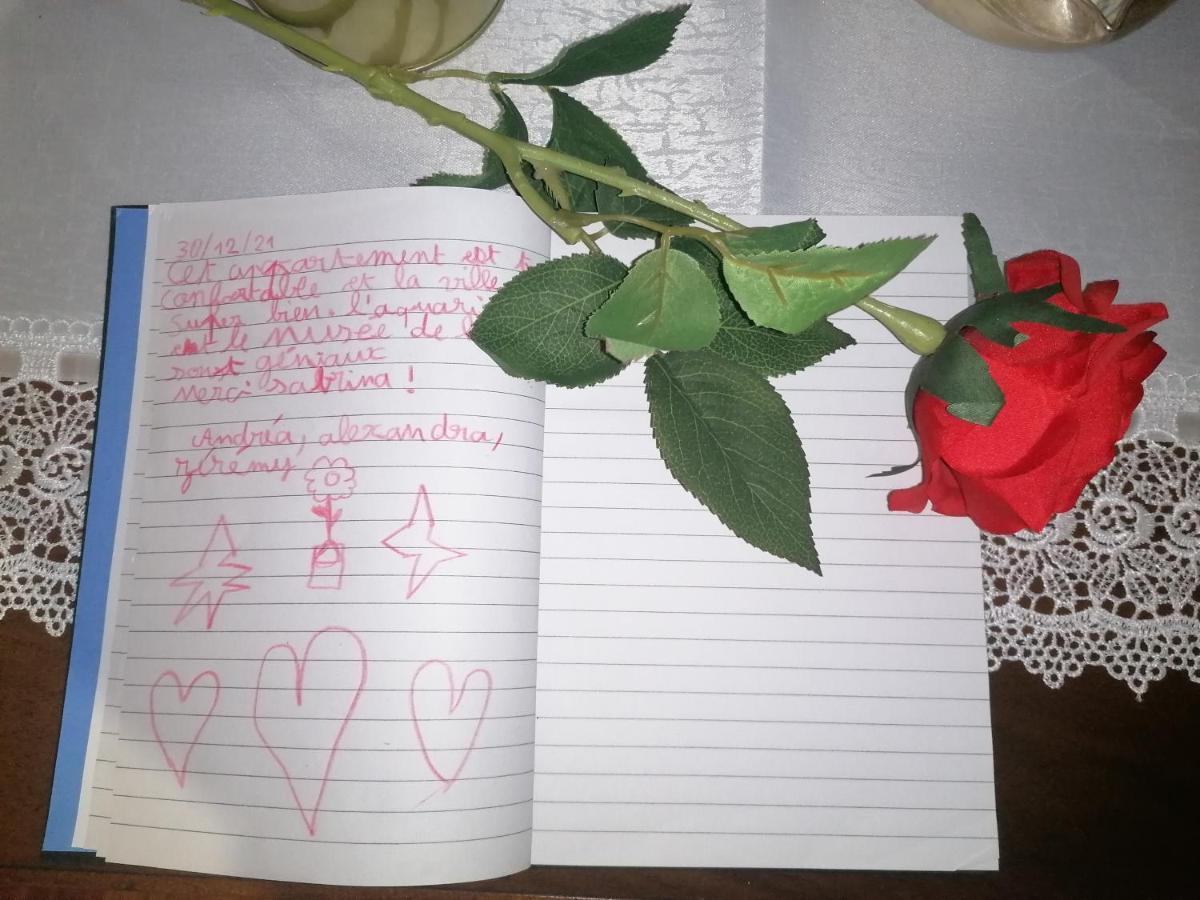 30/12/21
Cet appartement est
confortable et la ville
super bien. l'aquari
et le Musée de
sont géniaux
Merci sabrina !
Andréa, alexandra,
jérémy